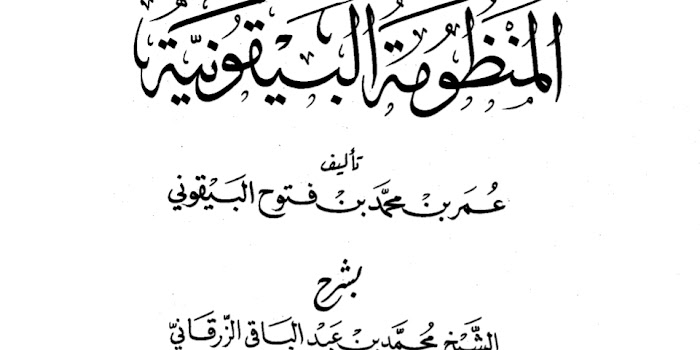 المنظومة البيقونية
تأليف
عمر بن محمد بن فتوح البيقوني
بشرح
الشيخ محمد بن عبد الباقي الزرقاني